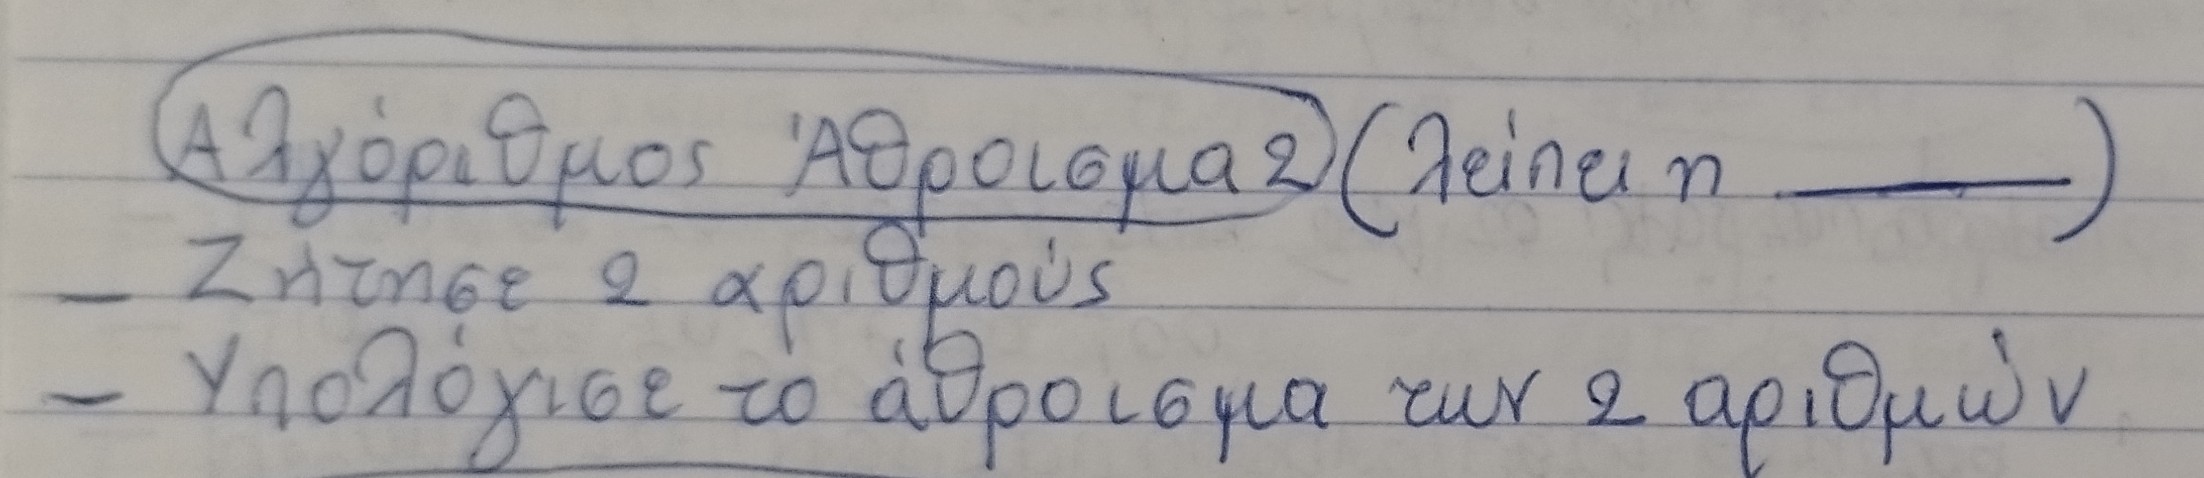 Αλγόριθμος Άθροισμα2 (λείπει η ____)
- Ζήτησε 2 αριθμούς
- Υπολόγισε το άθροισμα των 2 αριθμών